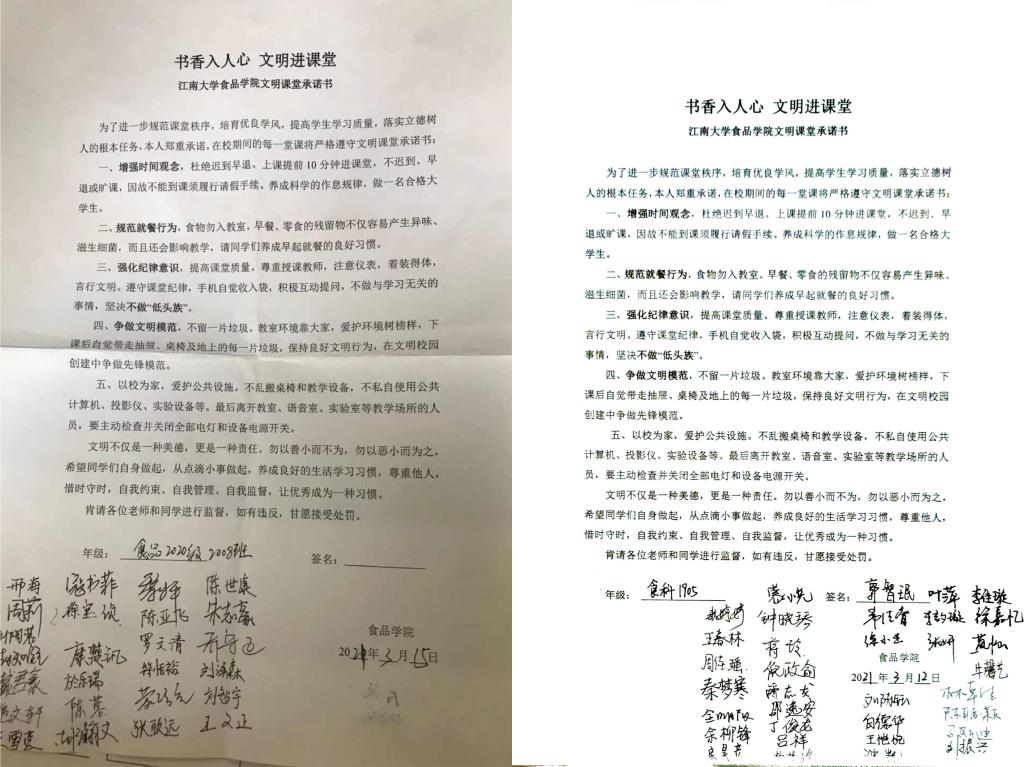 书香入人心 文明进课堂
江南大学食品学院文明课堂承诺书
为了进一步规范课堂秩序，培育优良学风，提高学生学习质量，落实立德树
人的根本任务，本人郑重承诺，在校期间的每一堂课将严格遵守文明课堂承诺书：
一、增强时间观念，杜绝迟到早退。上课提前10分钟进课堂，不迟到、早
退或旷课，因故不能到课须履行请假手续。养成科学的作息规律，做一名合格大
学生。
二、规范就餐行为，食物勿入教室。早餐、零食的残留物不仅容易产生异味、
滋生细菌，而且还会影响教学，请同学们养成早起就餐的良好习惯。
三、强化纪律意识，提高课堂质量。尊重授课教师，注意仪表，着装得体，
言行文明。遵守课堂纪律，手机自觉收入袋，积极互动提问，不做与学习无关的
事情，坚决不做“低头族”。
四、争做文明模范，不留一片垃圾。教室环境靠大家，爱护环境树榜样，下
课后自觉带走抽屉、桌椅及地上的每一片垃圾，保持良好文明行为，在文明校园
创建中争做先锋模范。
五、以校为家，爱护公共设施。不乱搬桌椅和教学设备，不私自使用公共
计算机、投影仪、实验设备等。最后离开教室、语音室、实验室等教学场所的人
员，要主动检查并关闭全部电灯和设备电源开关。
文明不仅是一种美德，更是一种责任。勿以善小而不为，勿以恶小而为之，
希望同学们自身做起，从点滴小事做起，养成良好的生活学习习惯，尊重他人，
惜时守时，自我约束、自我管理、自我监督，让优秀成为一种习惯。
肯请各位老师和同学进行监督，如有违反，甘愿接受处罚。
年级： 食品2020级 2008班 签名：
邢海 陈世康
周莉 陈亚飞
罗文清
刘智宇
陈慕 张歌远 王文正
食品学院
2021年3月15日
书香入人心 文明进课堂
江南大学食品学院文明课堂承诺书
为了进一步规范课堂秩序，培育优良学风，提高学生学习质量，落实立德树
人的根本任务，本人郑重承诺，在校期间的每一堂课将严格遵守文明课堂承诺书：
一、增强时间观念，杜绝迟到早退。上课提前10分钟进课堂，不迟到、早
退或旷课、因故不能到课须履行请假手续。养成科学的作息规律，做一名合格大
学生。
二、规范就餐行为，食物勿入教室。早餐、零食的残留物不仅容易产生异味、
滋生细菌，而且还会影响教学，请同学们养成早起就餐的良好习惯。
三、强化纪律意识，提高课堂质量。尊重授课教师，注意仪表，着装得体，
言行文明。遵守课堂纪律，手机自觉收入袋，积极互动提问，不做与学习无关的
事情，坚决不做“低头族”。
四、争做文明模范，不留一片垃圾。教室环境靠大家，爱护环境树榜样，下
课后自觉带走抽屉、桌椅及地上的每一片垃圾，保持良好文明行为，在文明校园
创建中争做先锋模范。
五、以校为家，爱护公共设施。不乱搬桌椅和教学设备，不私自使用公共
计算机、投影仪、实验设备等。最后离开教室、语音室、实验室等教学场所的人
员，要主动检查并关闭全部电灯和设备电源开关。
文明不仅是一种美德，更是一种责任。勿以善小而不为，勿以恶小而为之，
希望同学们自身做起，从点滴小事做起，养成良好的生活学习习惯，尊重他人，
惜时守时，自我约束、自我管理、自我监督，让优秀成为一种习惯。
肯请各位老师和同学进行监督，如有违反，甘愿接受处罚。
年级： 食科1905 签名： 郭智珉 叶萍
钟晓琴 徐嘉忆
王春林
食品学院
2021年3月12日
秦梦寒
余柳锋 丁俊尧
吕祥